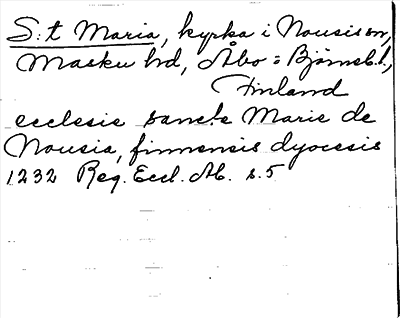 S:t Maria, kyrka i Nousis sn,
Masku hd, Åbo = Björneb. l.,
Finland
ecclesie sancte Marie de
Nousia, finnensis dyocesis
1232 Reg. Eccl. Ab. s. 5